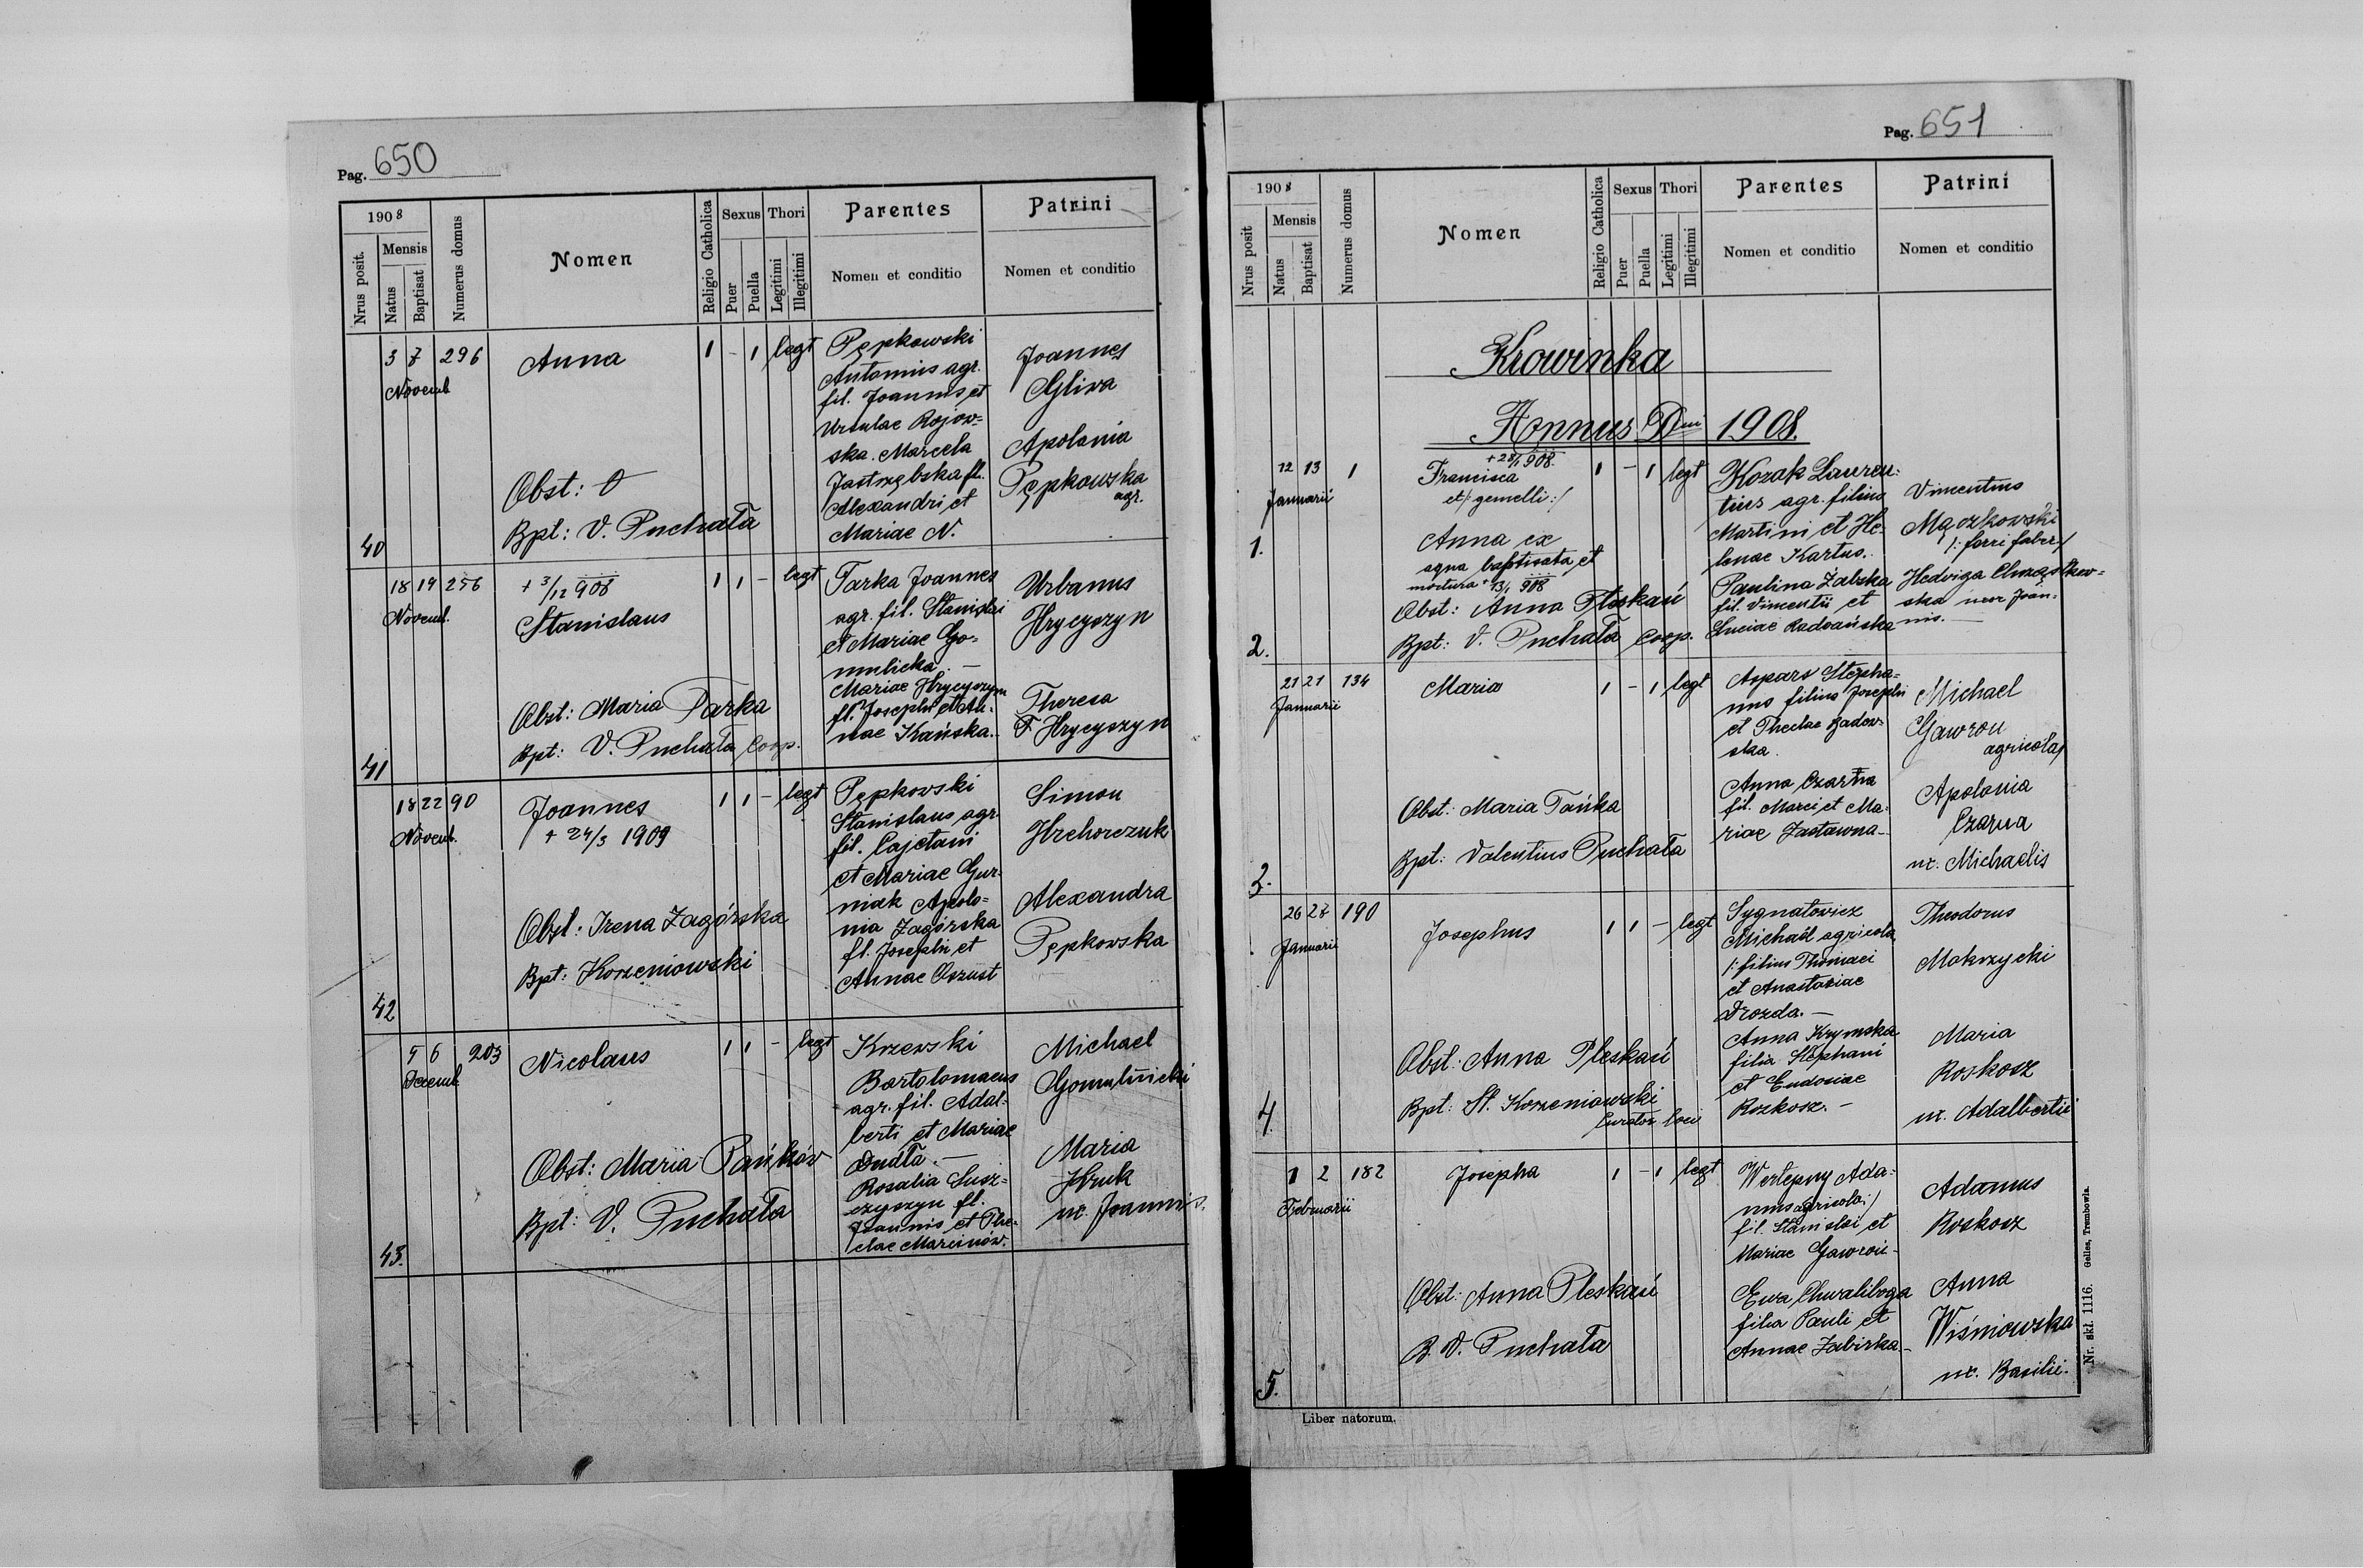 Pag. 650
1908
Nrus posit.
Mensis
Natus
Baptisat
Numerus domus
Nomen
Religio Catholica
Sexus
Puer
Puella
Thori
Legitimi
Illegitimi
Parentes
Nomen et conditio
Patrini
Nomen et conditio
40
3 7 296
Novemb
Anna
Obst: O
Bpt: V. Puchała
1 - 1 legt
Pępkowski
Antonius agr.
fil. Joannis et
Ursulae Rojow=
ska. Marcela
Jastrzębska fl.
Alexandri et
Mariae N.
Joannes
Gliwa
Apolonia
Pępkowska
agr.
41
18 19 256
Novemb.
+ 3/12 908
Stanislaus
Obst: Maria Tarka
Bpt: V. Puchała Coop.
1 1 - legt
Tarka Joannes
agr. fil. Stanislai
et Mariae Go=
mulicka. —
Mariae Hrycyszyn
fl. Josephi et An=
nae Kańska.
Urbanus
Hrycyszyn
Theresa
Hrycyszyn
42
18 22 90
Novemb.
Joannes
+ 24/3 1909
Obst: Irena Zagórska
Bpt: Korzeniowski
1 1 - legt
Pępkowski
Stanislaus agr.
fil. Cajetani
et Mariae Gur=
niak Apolo=
nia Zagórska
fl. Josephi et
Annae Oszust
Simon
Hrehorczuk
Alexandra
Pępkowska
43.
5 6 203
Decemb
Nicolaus
Obst: Maria Pańków
Bpt: V. Puchała
1 1 - legt
Krzewski
Bartolomaeus
agr. fil. Adal=
berti et Mariae
Dudła. —
Rosalia Susz=
czyszyn fl.
Joannis et The=
clae Marcinów.
Michael
Gomulnicki
Maria
Hruk
ux. Joannis.
Pag. 651
1908
Nrus posit
Mensis
Natus
Baptisat
Numerus domus
Nomen
Religio Catholica
Sexus
Puer
Puella
Thori
Legitimi
Illegitimi
Parentes
Nomen et conditio
Patrini
Nomen et conditio
Krowinka
Annus Dni 1908.
1.
2.
12 13 1
Januarii
908.
Francisca
et /: gemelli :/
Anna ex
aqua baptisata et
mortua + 13/1 908
Obst: Anna Pleskań
Bpt: V. Puchała Coop.
1 - 1 legt
Kozak Lauren=
tius agr. filius
Martini et He=
lenae Kartus.
Paulina Żabska
fil. Vincentii et
Luciae Radwańska
Vincentius
Mączkowski
/: ferri faber :/
Hedviga Chrząstkow=
ska uxor Joan=
nis. —
3.
21 21 134
Januarii
Maria
Obst: Maria Tańka
Bpt: Valentius Puchała
1 - 1 legt
Aspars Stepha=
nus filius Josephi
et Theclae Badow=
ska.
Anna Czarna
fil. Marci et Ma=
riae Zastawna —
Michael
Gawron
agricola/
Apolonia
Czarna
ux. Michaelis
4.
26 27 190
Januarii
Josephus
Obst: Anna Pleskań
Bpt: St. Korzeniowski
Curator loci
1 1 - legt
Sygnatowicz
Michaël agricola
/: filius Thomaei
et Anastasiae
Drozda. —
Anna Krymska
filia Stephani
et Eudosiae
Rozkosz. —
Theodorus
Mokrzycki
Maria
Roskosz
ux. Adalberti
5.
1 2 182
Februarii
Josepha
Obst: Anna Pleskań
B. V. Puchała
1 - 1 legt
Wertepny Ada=
mus agricola :/
fil. Stanislai et
Mariae Gawroń —
Ewa Chwaliboga
filia Pauli et
Annae Zabirka —
Adamus
Roskosz
Anna
Wiśniowska
ux. Basilii.
Liber natorum.
Nr. skł. 1116. Gelles, Trembowla.